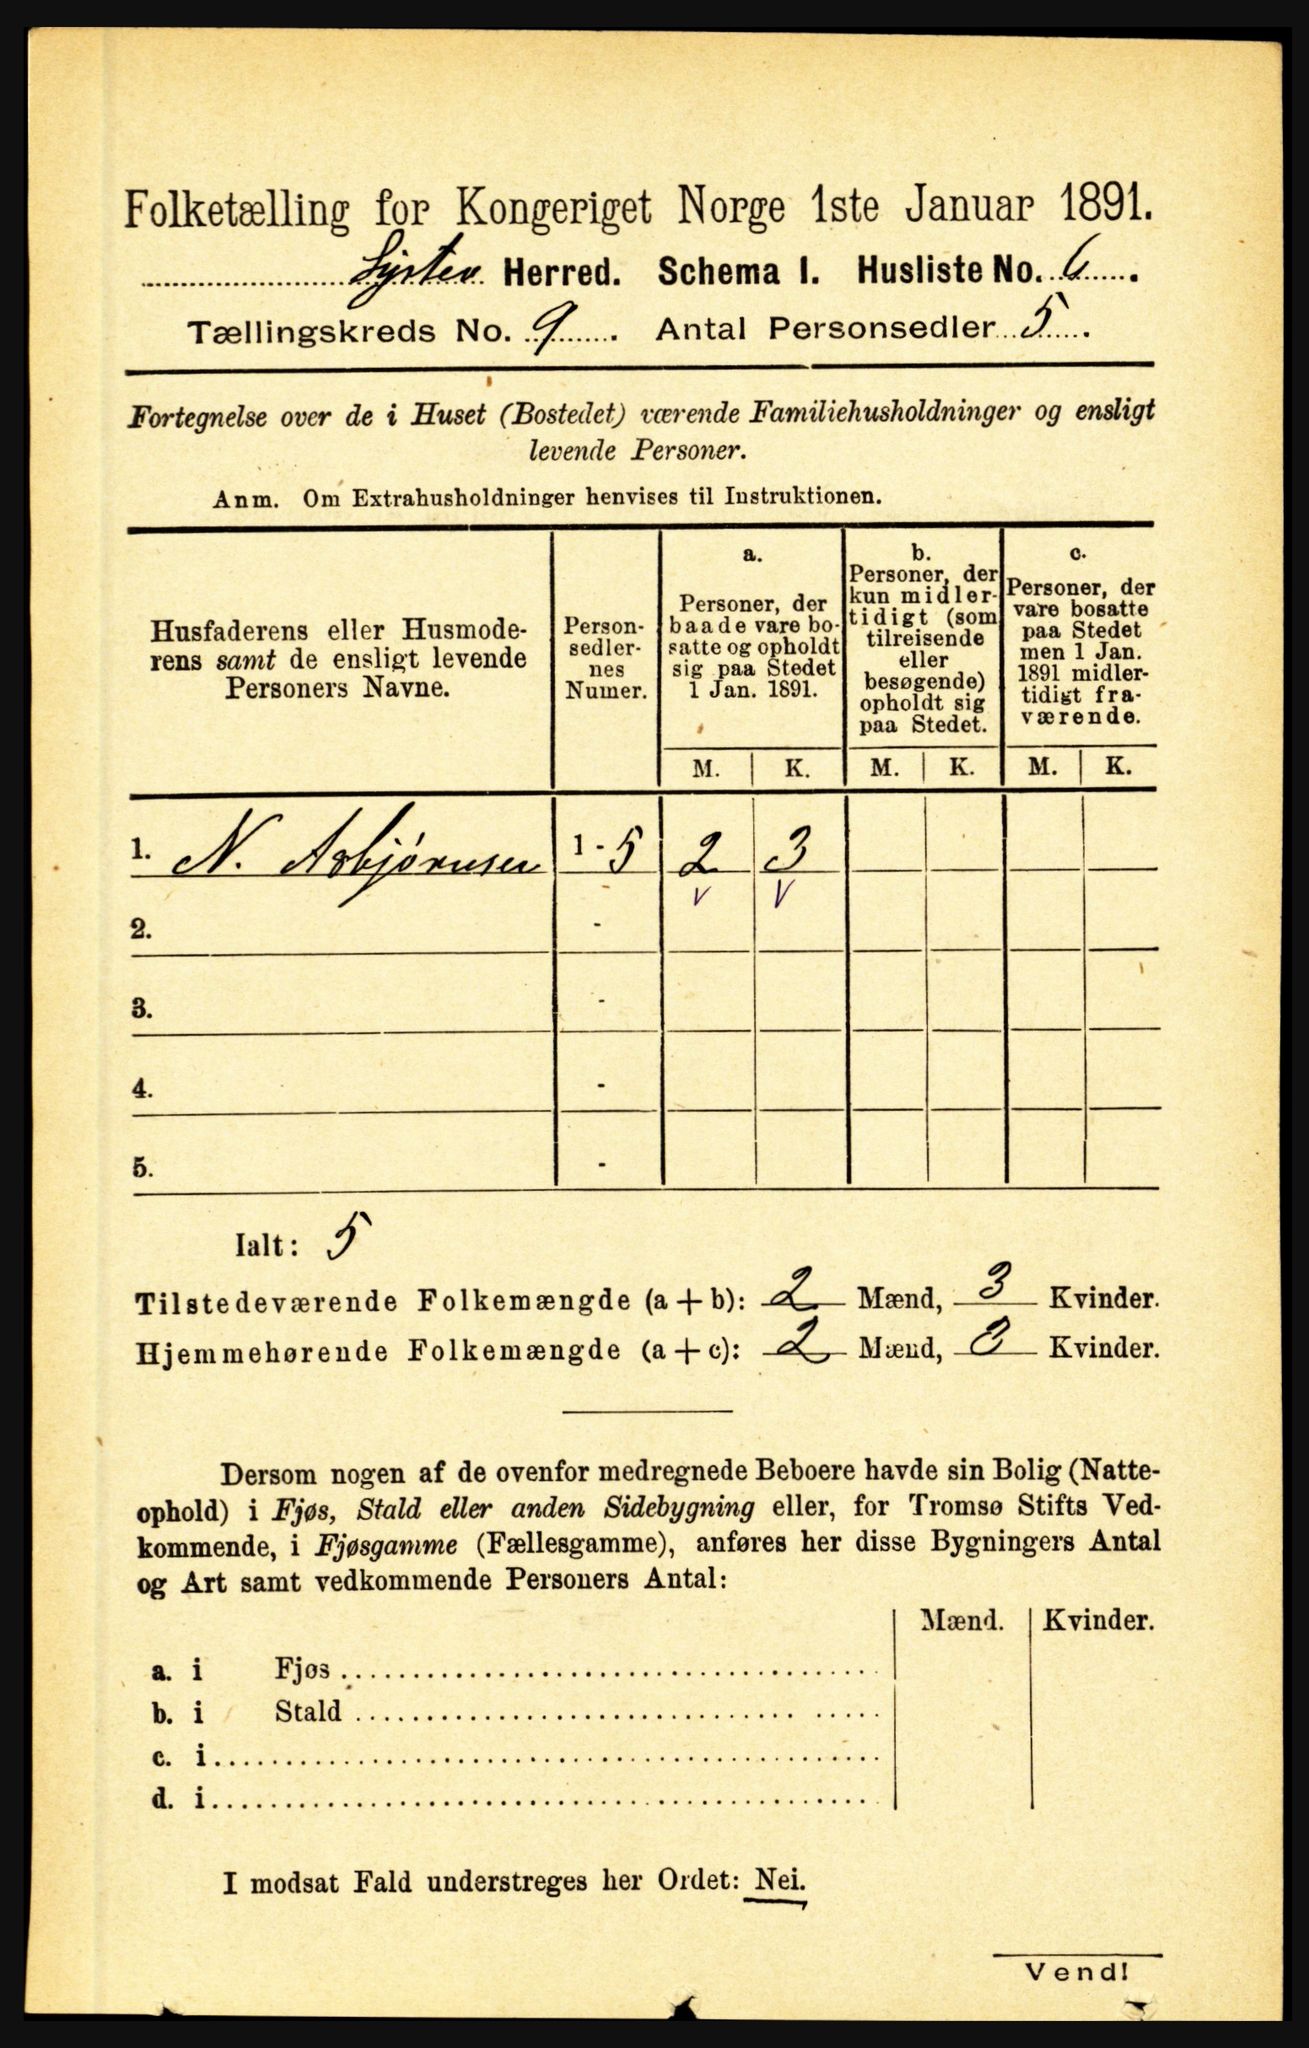 Folketælling for Kongeriget Norge 1ste Januar 1891.
Lyster Herred. Schema I. Husliste No. 6.
Tællingskreds No. 9. Antal Personsedler 5.
Fortegnelse over de i Huset (Bostedet) værende Familiehusholdninger og ensligt
levende Personer.
Anm. Om Extrahusholdninger henvises til Instruktionen.
Husfaderens eller Husmode-
rens samt de ensligt levende
Personers Navne.
Person-
sedler-
nes
Numer.
a.
Personer, der
baade vare bo-
satte og opholdt
sig paa Stedet
1 Jan. 1891.
b.
Personer, der
kun midler-
tidigt (som
tilreisende
eller
besøgende)
opholdt sig
paa Stedet.
c.
Personer, der
vare bosatte
paa Stedet
men 1 Jan.
1891 midler-
tidigt fra-
værende.
M. K. M. K. M. K.
1. N. Asbjørnsen 1 - 5 2 3
2. -
3. -
4. -
5. -
Ialt: 5
Tilstedeværende Folkemængde (a + b): 2 Mænd, 3 Kvinder.
Hjemmehørende Folkemængde (a + c): 2 Mænd, 3 Kvinder.
Dersom nogen af de ovenfor medregnede Beboere havde sin Bolig (Natte-
ophold) i Fjøs, Stald eller anden Sidebygning eller, for Tromsø Stifts Ved-
kommende, i Fjøsgamme (Fællesgamme), anføres her disse Bygningers Antal
og Art samt vedkommende Personers Antal:
Mænd. Kvinder.
a. i Fjøs
b. i Stald
c. i
d. i
I modsat Fald understreges her Ordet: Nei.
Vend!